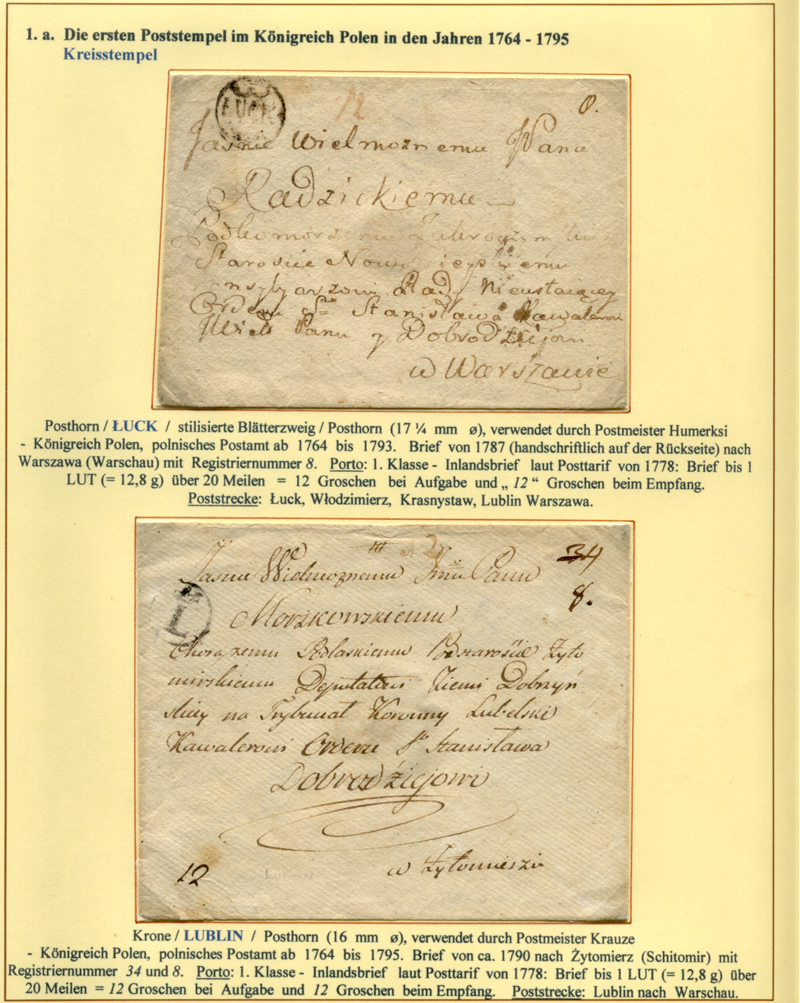 1. a. Die ersten Poststempel im Königreich Polen in den Jahren 1764 - 1795
Kreisstempel
ŁUCK
12
8.
Jaśnie Wielmożnemu Panu
Radzickiemu
Podkomorzemu Zakroczym
Staroście Nowo
Rady Nieustaiącey
Orderu Sgo Stanisława Kawalerowi
Wielo Panu y Dobrodziejowi
w Warszawie
Posthorn / ŁUCK / stilisierte Blätterzweig / Posthorn (17 ¼ mm ø), verwendet durch Postmeister Humerksi
- Königreich Polen, polnisches Postamt ab 1764 bis 1793. Brief von 1787 (handschriftlich auf der Rückseite) nach
Warszawa (Warschau) mit Registriernummer 8. Porto: 1. Klasse - Inlandsbrief laut Posttarif von 1778: Brief bis 1
LUT (= 12,8 g) über 20 Meilen = 12 Groschen bei Aufgabe und „ 12 “ Groschen beim Empfang.
Poststrecke: Łuck, Włodzimierz, Krasnystaw, Lublin Warszawa.
12
34
Jasnie Wielmożnemu Jmći Panu
8.
L
Morzkowskiemu
Chorążemu Podlaskiemu Żyto
mirskiemu Deputatowi Ziemi Dobrzyń
skiey na Trybunał Koronny Lubelski
Kawalerowi Orderu Sgo Stanisława
Dobrodźiejowi
w Żytomierzu
12
Krone / LUBLIN / Posthorn (16 mm ø), verwendet durch Postmeister Krauze
- Königreich Polen, polnisches Postamt ab 1764 bis 1795. Brief von ca. 1790 nach Żytomierz (Schitomir) mit
Registriernummer 34 und 8. Porto: 1. Klasse - Inlandsbrief laut Posttarif von 1778: Brief bis 1 LUT (= 12,8 g) über
20 Meilen = 12 Groschen bei Aufgabe und 12 Groschen beim Empfang. Poststrecke: Lublin nach Warschau.